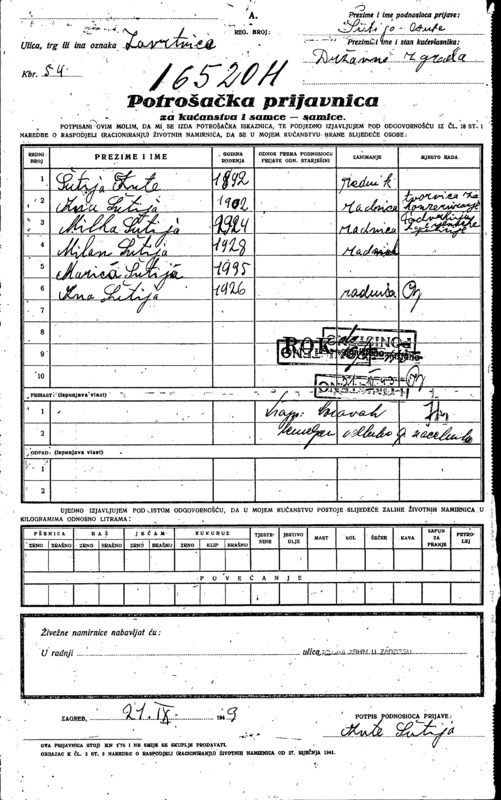 A.
REG. BROJ:
Prezime i ime podnosioca prijave:
Šutija Ante
Ulica, trg ili ina oznaka Zavrtnica
Prezime i ime i stan kućevlasnika:
Državna zgrada
Kbr. 54
16520H
Potrošačka prijavnica
za kućanstva i samce — samice.
POTPISANI OVIM MOLIM, DA MI SE IZDA POTROŠAČKA ISKAZNICA, TE PODJEDNO IZJAVLJUJEM POD ODGOVORNOŠĆU IZ ČL. 18 ST. 1
NAREDBE O RASPODJELI (RACIONIRANJU) ŽIVOTNIH NAMIRNICA, DA SE U MOJEM KUĆANSTVU HRANE SLIJEDEĆE OSOBE:
REDNI BROJ PREZIME I IME GODINA ROĐENJA ODNOS PREMA PODNOSIOCU PRIJAVE ODN. STARJEŠINI ZANIMANJE MJESTO RADA
1 Šutija Ante 1892 radnik
2 Ana Šutija 1902 radnica tvornica za
3 Milka Šutija 1924 radnica
4 Milan Šutija 1928 radnik
5 Marica Šutija 1935
6 Ana Šutija 1926 radnica
7
8
9
10
PRIRAST: (ispunjava vlast)
1
2
ODPAD: (ispunjava vlast)
1
2
UJEDNO IZJAVLJUJEM POD ISTOM ODGOVORNOŠĆU, DA U MOJEM KUĆANSTVU POSTOJE SLIJEDEĆE ZALIHE ŽIVOTNIH NAMIRNICA U
KILOGRAMIMA ODNOSNO LITRAMA:
PŠENICA RAŽ JEČAM KUKURUZ TJESTENINE JESTIVO ULJE MAST SOL ŠEĆER KAVA SAPUN ZA PRANJE PETROLEJ
ZRNO BRAŠNO ZRNO BRAŠNO ZRNO BRAŠNO ZRNO KLIP BRAŠNO
POVEĆANJE
Živežne namirnice nabavljat ću:
U radnji ulica
ZAGREB, 21. IX 1949
POTPIS PODNOSIOCA PRIJAVE:
Ante Šutija
OVA PRIJAVNICA STOJI KN 1.75 I NE SMIJE SE SKUPLJE PRODAVATI.
OBRAZAC K ČL. 2 ST. 3 NAREDBE O RASPODJELI (RACIONIRANJU) ŽIVOTNIH NAMIRNICA OD 27. SIJEČNJA 1941.